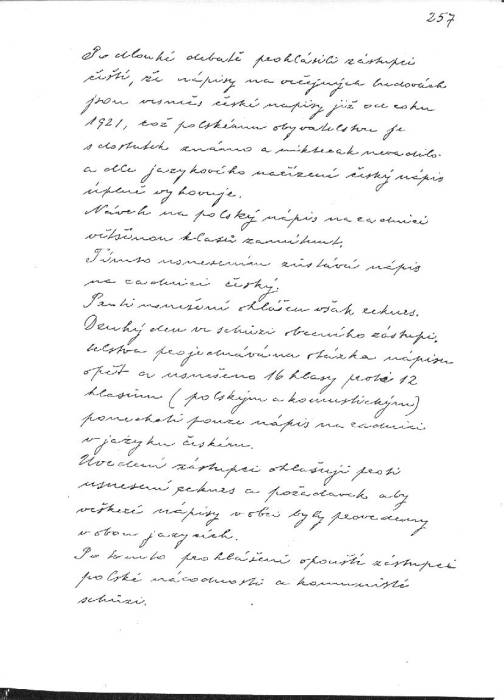 257
Po dlouhé debatě prohlásili zástupci
čeští, že nápisy na veřejných budovách
jsou vesměs české nápisy již od roku
1921, což polskému obyvatelstvu je
sdostatek známo a nikterak nevadilo
a dle jazykového nařízení český nápis
úplně vyhovuje.
Návrh na polský nápis na radnici
většinou hlasů zamítnut.
Tímto usnesením zůstává nápis
na radnici český.
Proti usnešení ohlášen však rekurs.
Druhý den ve schůzi obecního zastupi-
telstva projednávána otázka nápisu
opět a usnešeno 16 hlasy proti 12
hlasům (polským a komustickým)
ponechati pouze nápis na radnici
v jazyku českém.
Uvedení zástupci ohlašují proti
usnesení rekurs a požadavek aby
veškeré nápisy v obci byly provedeny
v obou jazycích.
Po tomto prohlášení opouští zástupci
polské národnosti a komunisté
schůzi.